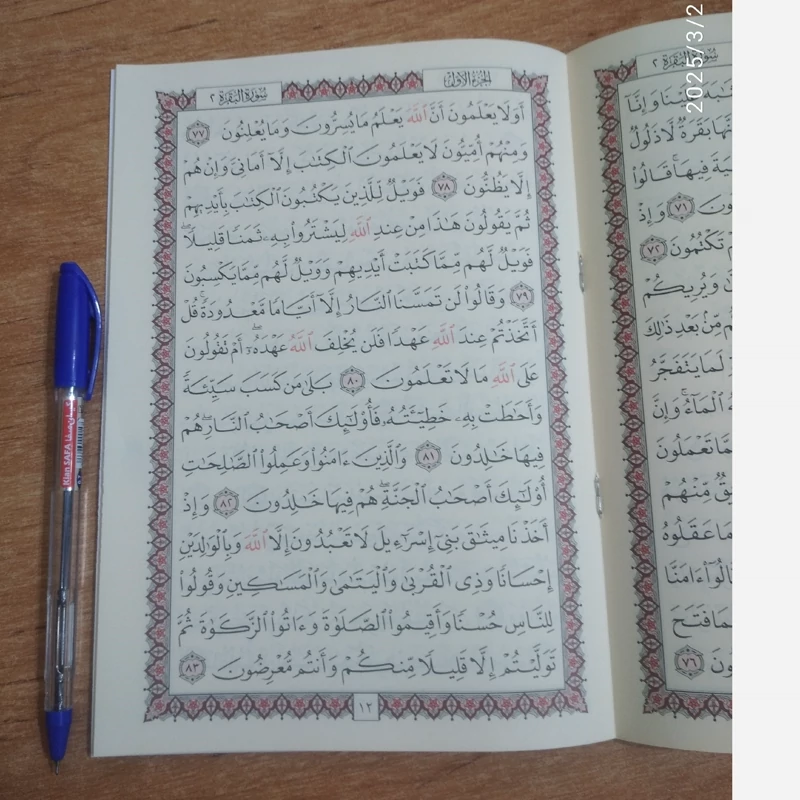 الجزء الأول
سورة البقرة ٢
أَوَلَا يَعْلَمُونَ أَنَّ ٱللَّهَ يَعْلَمُ مَا يُسِرُّونَ وَمَا يُعْلِنُونَ ٧٧
وَمِنْهُمْ أُمِّيُّونَ لَا يَعْلَمُونَ ٱلْكِتَٰبَ إِلَّآ أَمَانِىَّ وَإِنْ هُمْ
إِلَّا يَظُنُّونَ ٧٨ فَوَيْلٌ لِّلَّذِينَ يَكْتُبُونَ ٱلْكِتَٰبَ بِأَيْدِيهِمْ
ثُمَّ يَقُولُونَ هَٰذَا مِنْ عِندِ ٱللَّهِ لِيَشْتَرُوا۟ بِهِۦ ثَمَنًا قَلِيلًا ۖ
فَوَيْلٌ لَّهُم مِّمَّا كَتَبَتْ أَيْدِيهِمْ وَوَيْلٌ لَّهُم مِّمَّا يَكْسِبُونَ
٧٩ وَقَالُوا۟ لَن تَمَسَّنَا ٱلنَّارُ إِلَّآ أَيَّامًا مَّعْدُودَةً ۚ قُلْ
أَتَّخَذْتُمْ عِندَ ٱللَّهِ عَهْدًا فَلَن يُخْلِفَ ٱللَّهُ عَهْدَهُۥٓ ۖ أَمْ تَقُولُونَ
عَلَى ٱللَّهِ مَا لَا تَعْلَمُونَ ٨٠ بَلَىٰ مَن كَسَبَ سَيِّئَةً
وَأَحَٰطَتْ بِهِۦ خَطِيٓـَٔتُهُۥ فَأُو۟لَٰٓئِكَ أَصْحَٰبُ ٱلنَّارِ ۖ هُمْ
فِيهَا خَٰلِدُونَ ٨١ وَٱلَّذِينَ ءَامَنُوا۟ وَعَمِلُوا۟ ٱلصَّٰلِحَٰتِ
أُو۟لَٰٓئِكَ أَصْحَٰبُ ٱلْجَنَّةِ ۖ هُمْ فِيهَا خَٰلِدُونَ ٨٢ وَإِذْ
أَخَذْنَا مِيثَٰقَ بَنِىٓ إِسْرَٰٓءِيلَ لَا تَعْبُدُونَ إِلَّا ٱللَّهَ وَبِٱلْوَٰلِدَيْنِ
إِحْسَانًا وَذِى ٱلْقُرْبَىٰ وَٱلْيَتَٰمَىٰ وَٱلْمَسَٰكِينِ وَقُولُوا۟
لِلنَّاسِ حُسْنًا وَأَقِيمُوا۟ ٱلصَّلَوٰةَ وَءَاتُوا۟ ٱلزَّكَوٰةَ ثُمَّ
تَوَلَّيْتُمْ إِلَّا قَلِيلًا مِّنكُمْ وَأَنتُم مُّعْرِضُونَ ٨٣
١٢
سورة البقرة ٢
بَقَرَةٌ لَّا ذَلُولٌ
فِيهَا ۚ قَالُوا۟
٧١ وَإِذْ
تَكْتُمُونَ ٧٢
وَيُرِيكُمْ
مِّنۢ بَعْدِ ذَٰلِكَ
لَمَا يَتَفَجَّرُ
ٱلْمَآءُ ۚ وَإِنَّ
تَعْمَلُونَ
مِّنْهُمْ
مَا عَقَلُوهُ
ءَامَنَّا
فَتَحَ
٧٦
2025/3/2
Kian SAFA